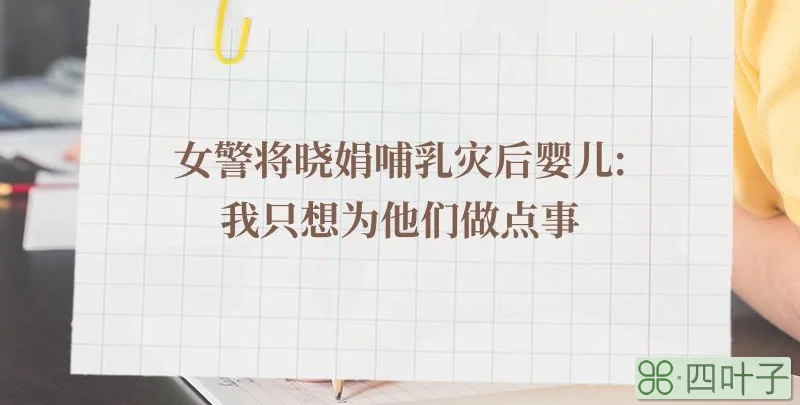 女警将晓娟哺乳灾后婴儿:
我只想为他们做点事
⌘·四叶子